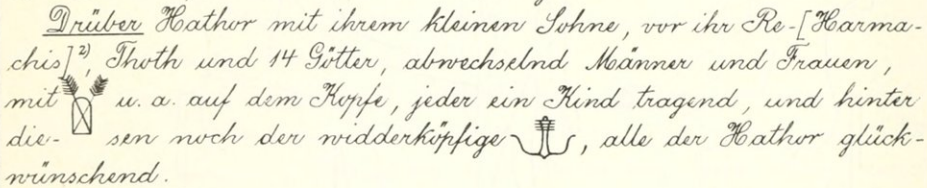 Drüber Hathor mit ihrem kleinen Sohne, vor ihr Re-[Harma-
chis]²⁾, Thoth und 14 Götter, abwechselnd Männer und Frauen,
mit u. a. auf dem Kopfe, jeder ein Kind tragend, und hinter
die- sen noch der widderköpfige , alle der Hathor glück-
wünschend.